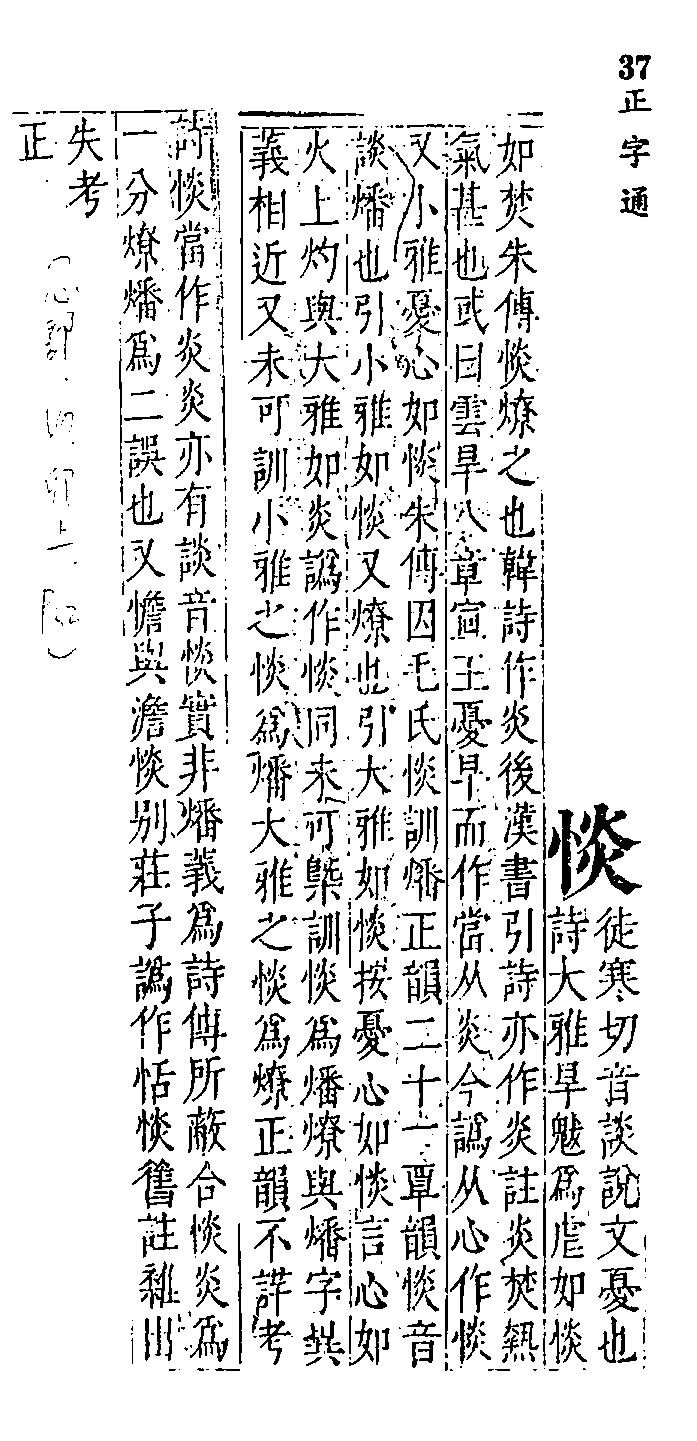 37
正字通
惔
徒寒切音談說文憂也
詩大雅旱魃爲虐如惔
如焚朱傳惔燎之也韓詩作炎後漢書引詩亦作炎註炎焚熱
氣甚也或曰雲旱八章宣王憂旱而作當从炎今譌从心作惔
又小雅憂心如惔朱傳因毛氏惔訓燔正韻二十一覃韻惔音
談燔也引小雅如惔又燎也引大雅如惔按憂心如惔言心如
火上灼與大雅如炎譌作惔同未可槩訓惔爲燔燎與燔字其
義相近又未可訓小雅之惔爲燔大雅之惔爲燎正韻不詳考
詩惔當作炎炎亦有談音惔實非燔義爲詩傳所蔽合惔炎爲
一分燎燔爲二誤也又憺與澹惔別莊子譌作恬惔舊註雜出
失考
正